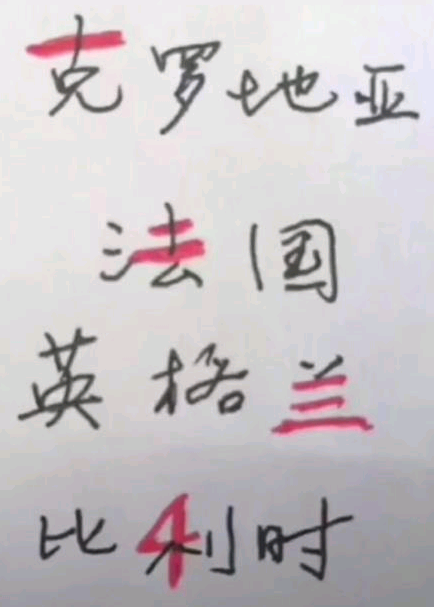 克罗地亚
法国
英格兰
比利时